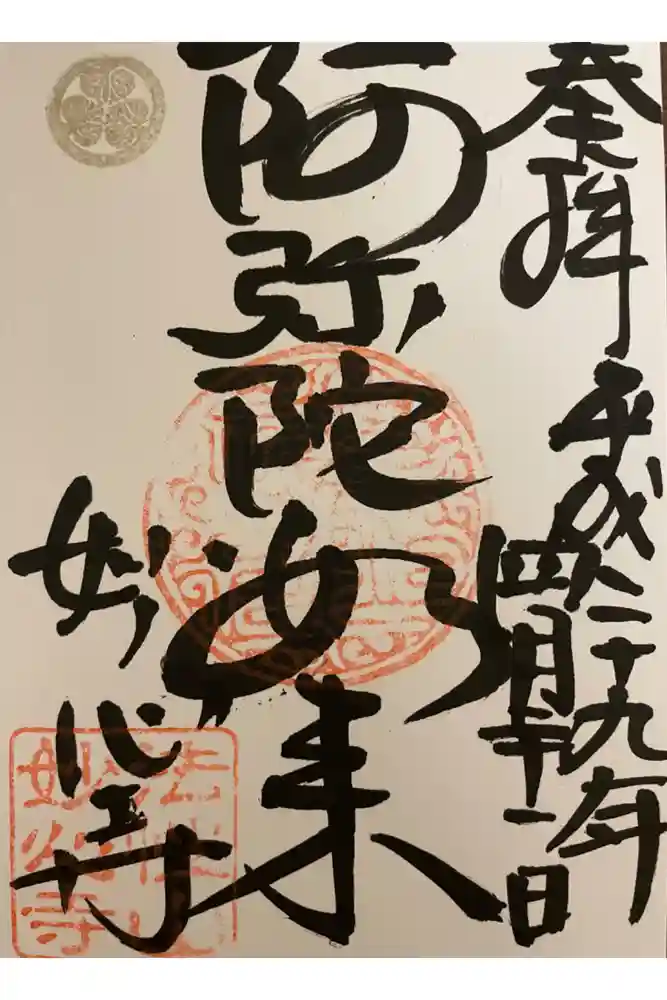 奉拝
平成二十九年
四月二十一日
阿弥陀如来
妙心寺
妙心寺